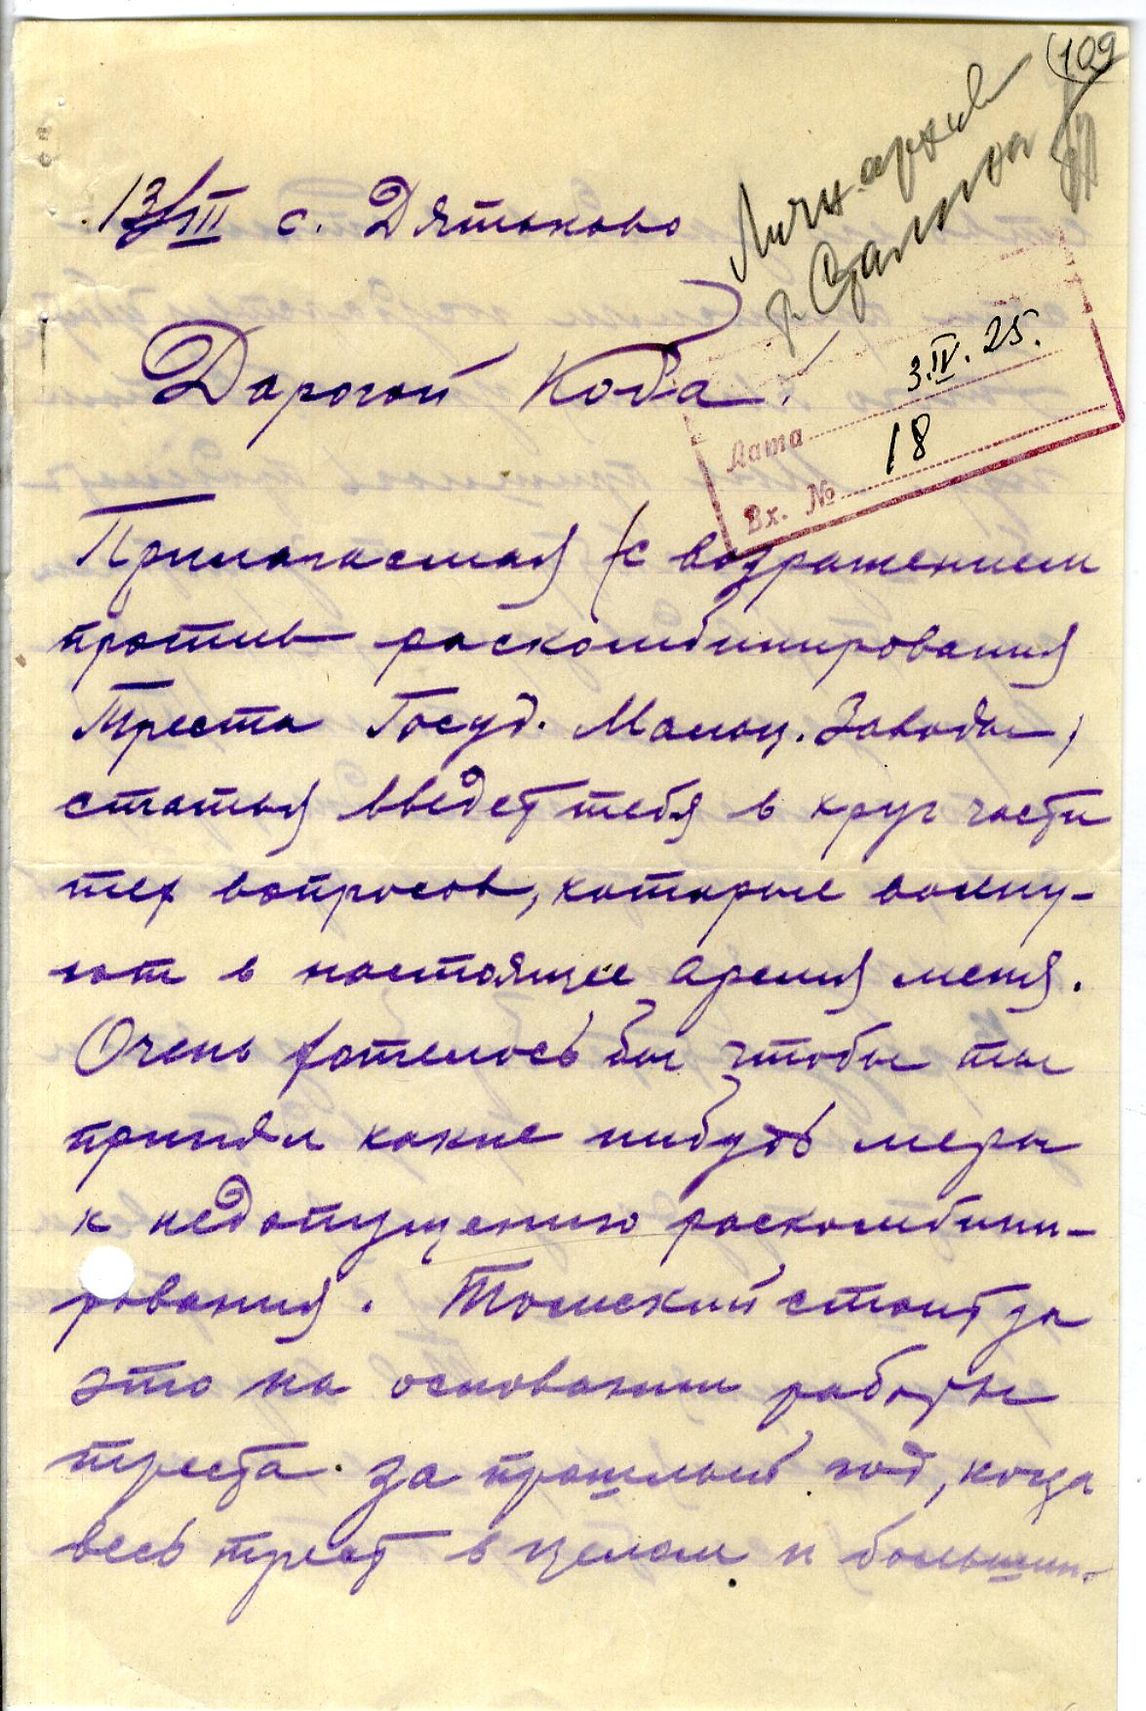 109
Личн. архив
т. Сталина
13/III с. Дятьково
Дорогой Коба!
Дата 3.IV.25.
Вх. № 18
Прилагаемая (с возражением
против раскомбинирования
Треста Госуд. Мальц. Заводы)
статья введет тебя в круг части
тех вопросов, которые волну-
ют в настоящее время меня.
Очень хотелось бы чтобы ты
принял какие нибудь меры
к недопущению раскомбини-
рования. Томский стоит за
это на основании работы
треста за прошлый год, когда
весь трест в целом и большин-